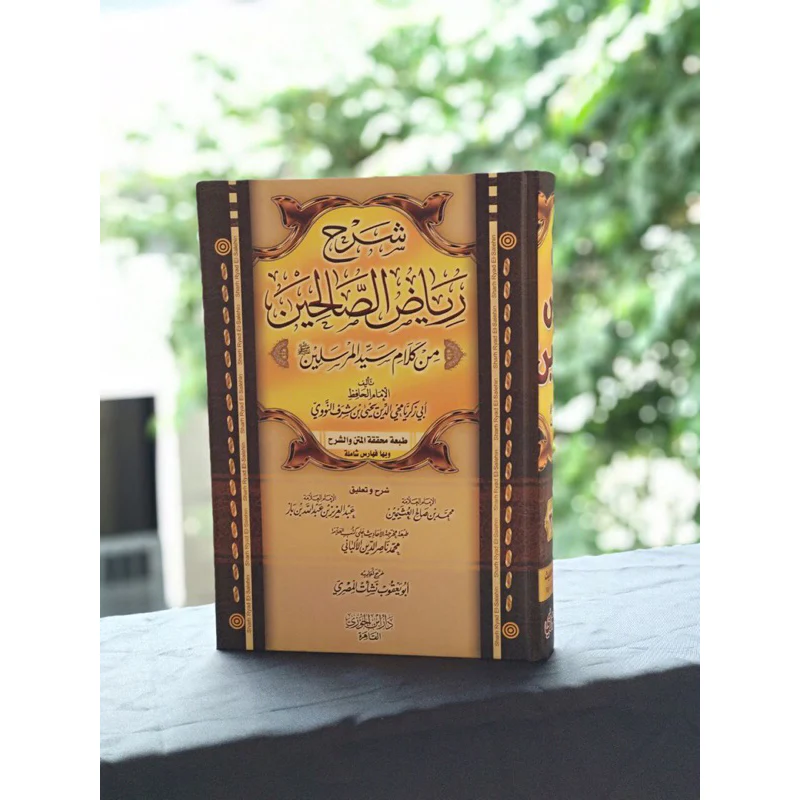 شرح
رياض الصالحين
من كلام سيد المرسلين ﷺ
تأليف
الإمام الحافظ
أبي زكريا محيي الدين يحيى بن شرف النووي
طبعة محققة المتن والشرح
وبها فهارس شاملة
شرح وتعليق
الإمام العلامة
محمد بن صالح العثيمين
الإمام العلامة
عبد العزيز بن عبد الله بن باز
طبعة مخرجة الأحاديث على كتب العلامة
محمد ناصر الدين الألباني
خرج أحاديثه
أبو يعقوب نشأت المصري
دار ابن الجوزي
القاهرة
Sharh Ryad El-Salehn